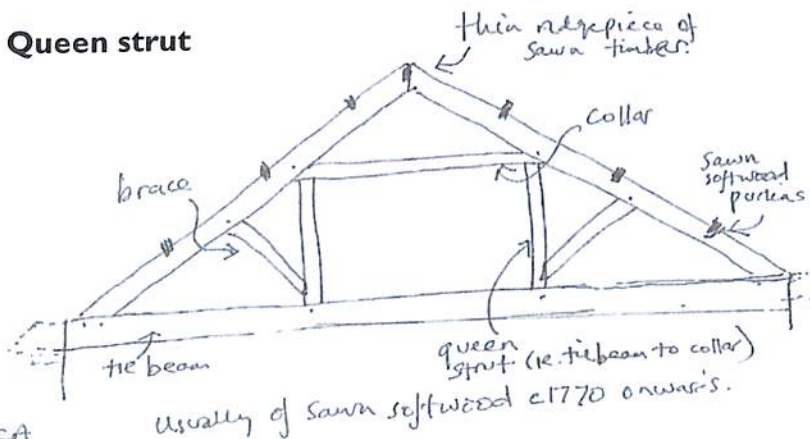 Queen strut
thin ridgepiece of
sawn timber.
collar
brace
sawn
softwood
purlins
tie beam
queen
strut (ie. tiebeam to collar)
Usually of sawn softwood c1770 onwards.